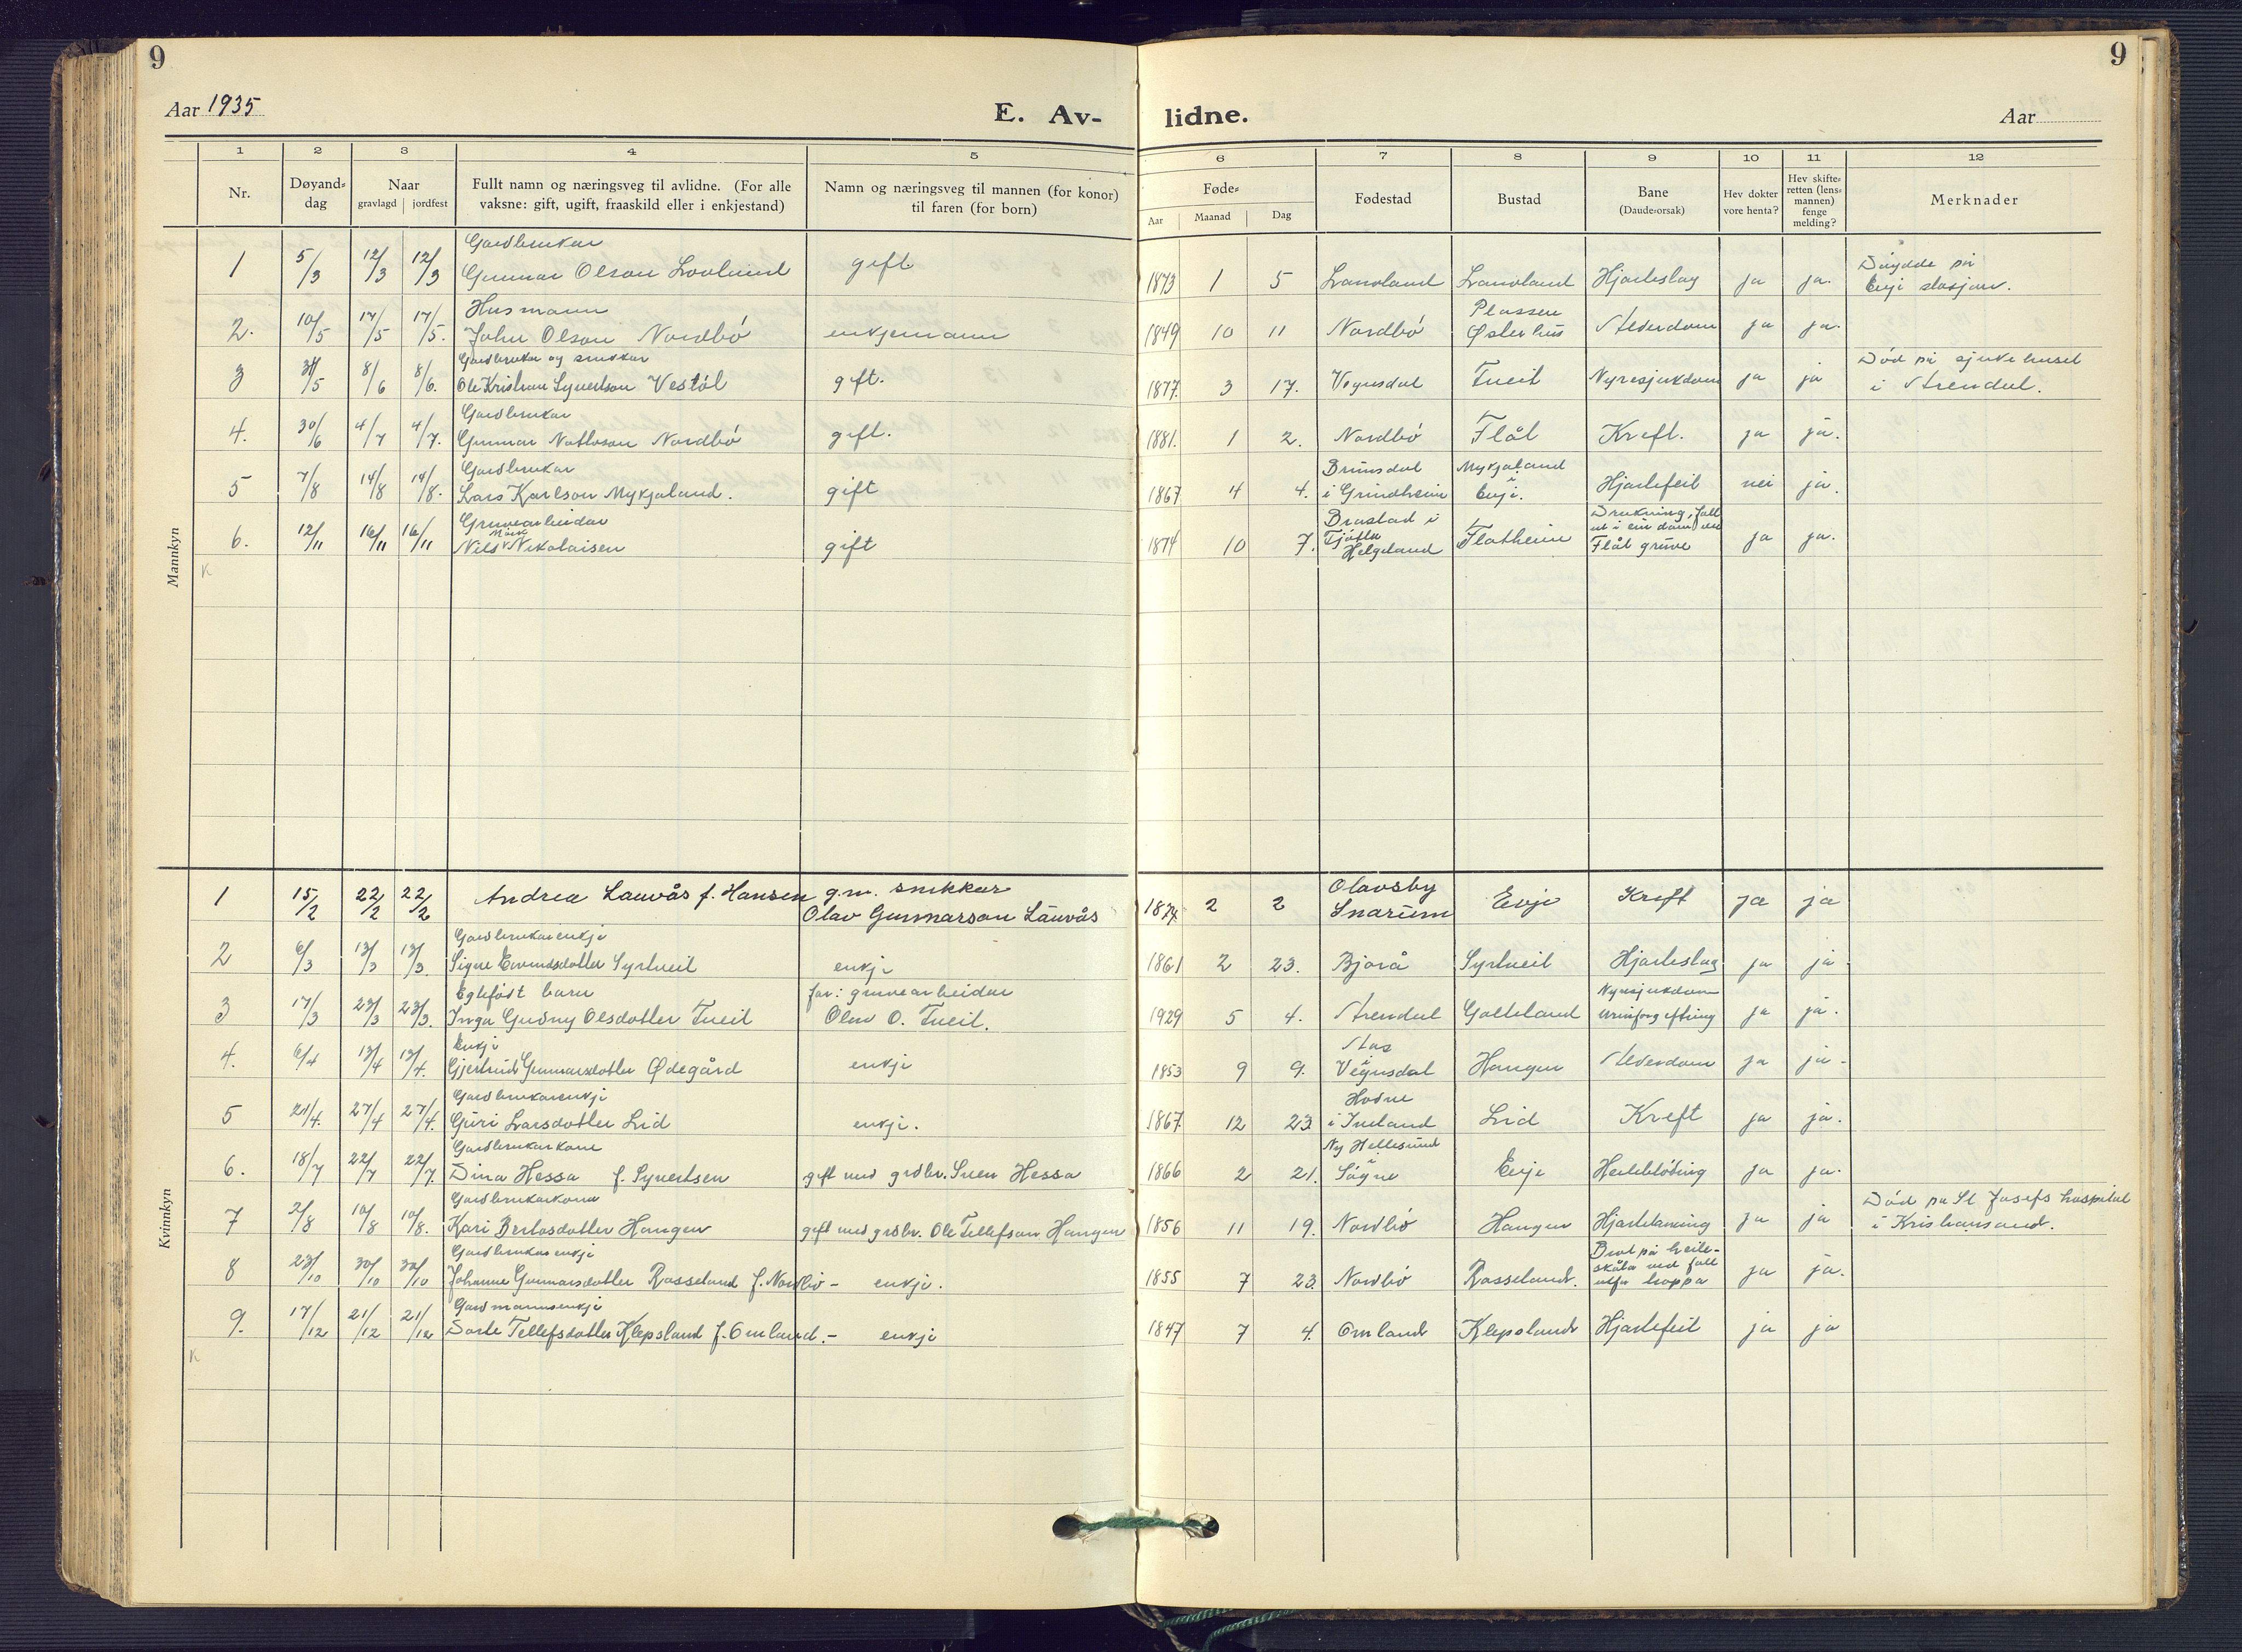 9
9
Aar 1935
E. Av-
lidne.
Aar
1 2 3 4 5 6 7 8 9 10 11 12
Nr.
Døyand-
dag
Naar
gravlagd jordfest
Fullt namn og næringsveg til avlidne. (For alle
vaksne: gift, ugift, fraaskild eller i enkjestand)
Namn og næringsveg til mannen (for konor)
til faren (for born)
Føde-
Aar Maanad Dag
Fødestad
Bustad
Bane
(Daude-orsak)
Hev dokter
vore henta?
Hev skifte-
retten (lens-
mannen)
fenge
melding?
Merknader
Mannkyn
Gardbrukar Døydde på
1 5/3 12/3 12/3 Gunnar Olson gift 1873 1 5 Hjarteslag ja ja. Evje stasjon.
Husmann Plassen
2. 10/5 17/5 17/5. John Olson Nordbó enkjemann 1849 10 11 Nordbó Østerhus Alderdom ja ja.
Gardbrukar og snikkar Død på sjukehuset
3 31/5 8/6 8/6. Ole Kristian Syvertson Vestöl gift. 1877. 3 17. Vegusdal Tveit Nyresjukdom ja ja i Arendal.
Gardbrukar
4. 30/6 4/7 4/7. Gunnar Nordbó gift. 1881. 1 2. Nordbó Flåt Kreft. ja ja.
Gardbrukar Mykjaland
5 7/8 14/8 14/8. Lars Karlson Mykjaland. gift 1867 4 4. i Grindheim i Evje. Hjartefeil nei ja.
Gruvearbeidar i Drukning, fall
6. 12/11 16/11 16/11 Nils Nikolaisen gift 1874 10 7. Tjøtta Helgeland Flatheim ut i ein dam ved Flåt gruve ja ja.
K
Kvinnkyn
Olavsby
1 15/2 22/2 22/2 Andrea Lauvås f. Hansen g.m. snikkar Olav Gunnarson Lauvås 2 2 Snarum Evje Kreft ja ja
Gardbrukarenkje
2 6/3 13/3 13/3. Signe Syrtveit enkje 1861 2 23. Bjorå Syrtveit Hjarteslag ja ja.
Egtefódt barn far: gruvearbeidar Nyresjukdom
3 17/3 23/3 23/3. Inga Gudny Olsdotter Tveit Olav O. Tveit. 1929 5 4. Arendal Galteland urinforgiftning ja ja.
Enkje
4. 6/4 13/4 13/4. Gjertrud Gunnarsdotter Ødegård enkje 1853 9 9. i Vegusdal Haugen Alderdom ja ja.
Gardbrukarenkje Hodne
5 21/4. 27/4 27/4. Guri Larsdotter Lid enkje. 1867. 12 23 i Iveland Lid Kreft ja ja.
Gardbrukarkone Ny Hellesund
6. 18/7 22/7 22/7. Dina Hessa f. Syvertsen gift med grdbr. Sven Hessa 1866 2 21. i Sógne Evje Heileblóding ja ja.
Gardbrukarkona Død på St Josefs hospital
7 2/8 10/8 10/8. Kari Haugen gift med grdbr. Ole Tellefson Haugen 1856 11 19. Nordbó Haugen ja ja i Kristiansand.
Gardbrukarenkje Brot på heile-
8 23/10 30/10 30/10 Johanne Gunnarsdotter Rosseland f. Nordbó - enkje. 1855 7 23. Nordbó Rosseland. skåla ved fall utfor trappa ja ja.
Gardmannsenkje
9. 17/12 21/12 21/12 Tellefsdotter Klepsland f. Omland. - enkje 1847 7 4. Omland Klepsland Hjartefeil ja ja
K